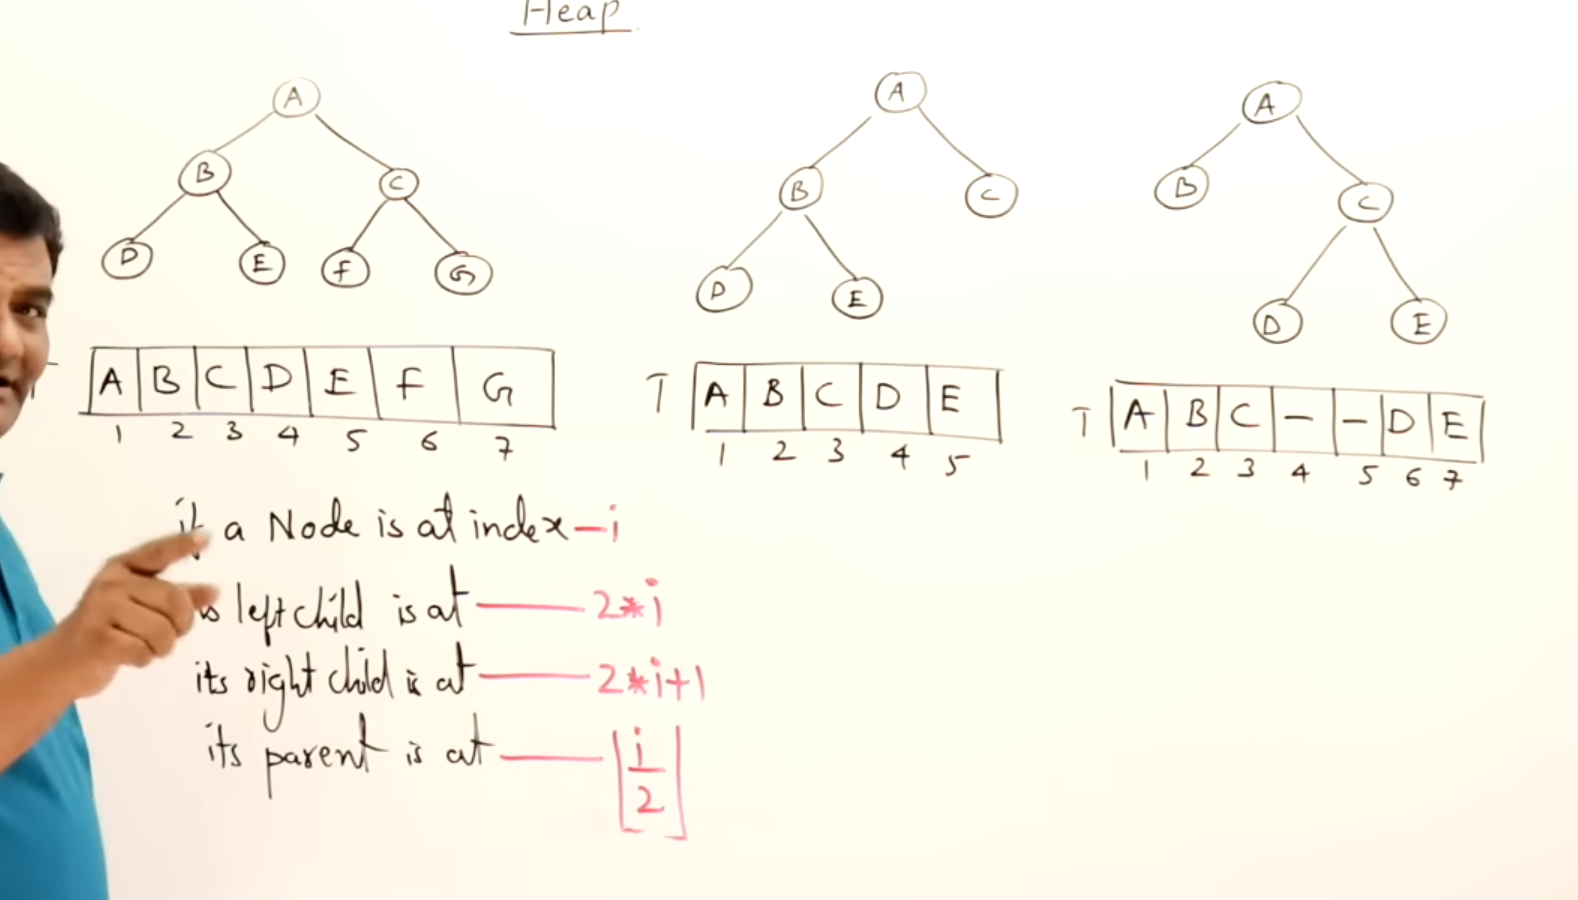 Heap
A
B
C
D
E
F
G
A
B
C
D
E
A
B
C
D
E
A B C D E F G
1 2 3 4 5 6 7
T A B C D E
1 2 3 4 5
T A B C - - D E
1 2 3 4 5 6 7
if a Node is at index - i
left child is at — 2*i
its right child is at — 2*i+1
its parent is at — ⌊i/2⌋